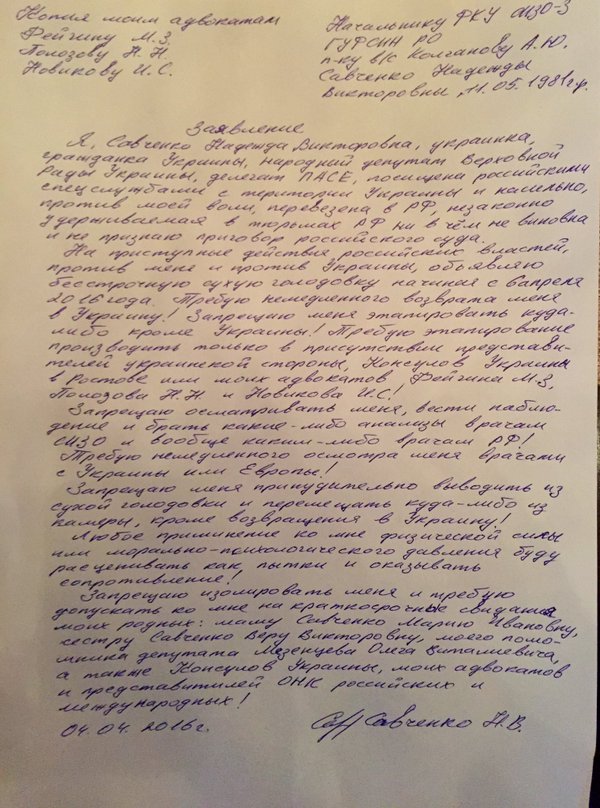 Копия моим адвокатам
Фейгину М.З.
Полозову Н.Н.
Новикову И.С.
Начальнику ФКУ СИЗО-3
ГУФСИН РО
п-ку в/с Колганову А.Ю.
Савченко Надежды
Викторовны, 11.05.1981г.р.
Заявление
Я, Савченко Надежда Викторовна, украинка,
гражданка Украины, Народный депутат Верховной
Рады Украины, делегат ПАСЕ, похищена российскими
спецслужбами с територии Украины и насильно,
против моей воли, перевезена в РФ, незаконно
удерживаемая в тюрьмах РФ ни в чём не виновна
и не признаю приговор российского суда.
На приступные действия российских властей,
против меня и против Украины, объявляю
бессрочную сухую голодовку начиная с 6 апреля
2016 года. Требую немедленного возврата меня
в Украину! Запрещаю меня этапировать куда-
либо кроме Украины! Требую этапирование
производить только в присутствии представи-
телей украинской стороны, Консулов Украины
в Ростове или моих адвокатов Фейгина М.З,
Полозова Н.Н и Новикова И.С!
Запрещаю осматривать меня, вести наблю-
дение и брать какие-либо анализы врачам
СИЗО и вообще каким-либо врачам РФ!
Требую немедленного осмотра меня врачами
с Украины или Европы!
Запрещаю меня принудительно выводить из
сухой голодовки и перемещать куда-либо из
камеры, кроме возвращения в Украину!
Любое приминение ко мне физической силы
или морально-психологического давления буду
расценивать как пытки и оказывать
сопротивление!
Запрещаю изолировать меня и требую
допускать ко мне на краткосрочные свидания
моих родных: маму Савченко Марию Ивановну,
сестру Савченко Веру Викторовну, моего помо-
щника депутата Мезенцева Олега Виталиевича,
а также Консулов Украины, моих адвокатов
и представителей ОНК российских и
международных!
04.04.2016г.
Савченко Н.В.